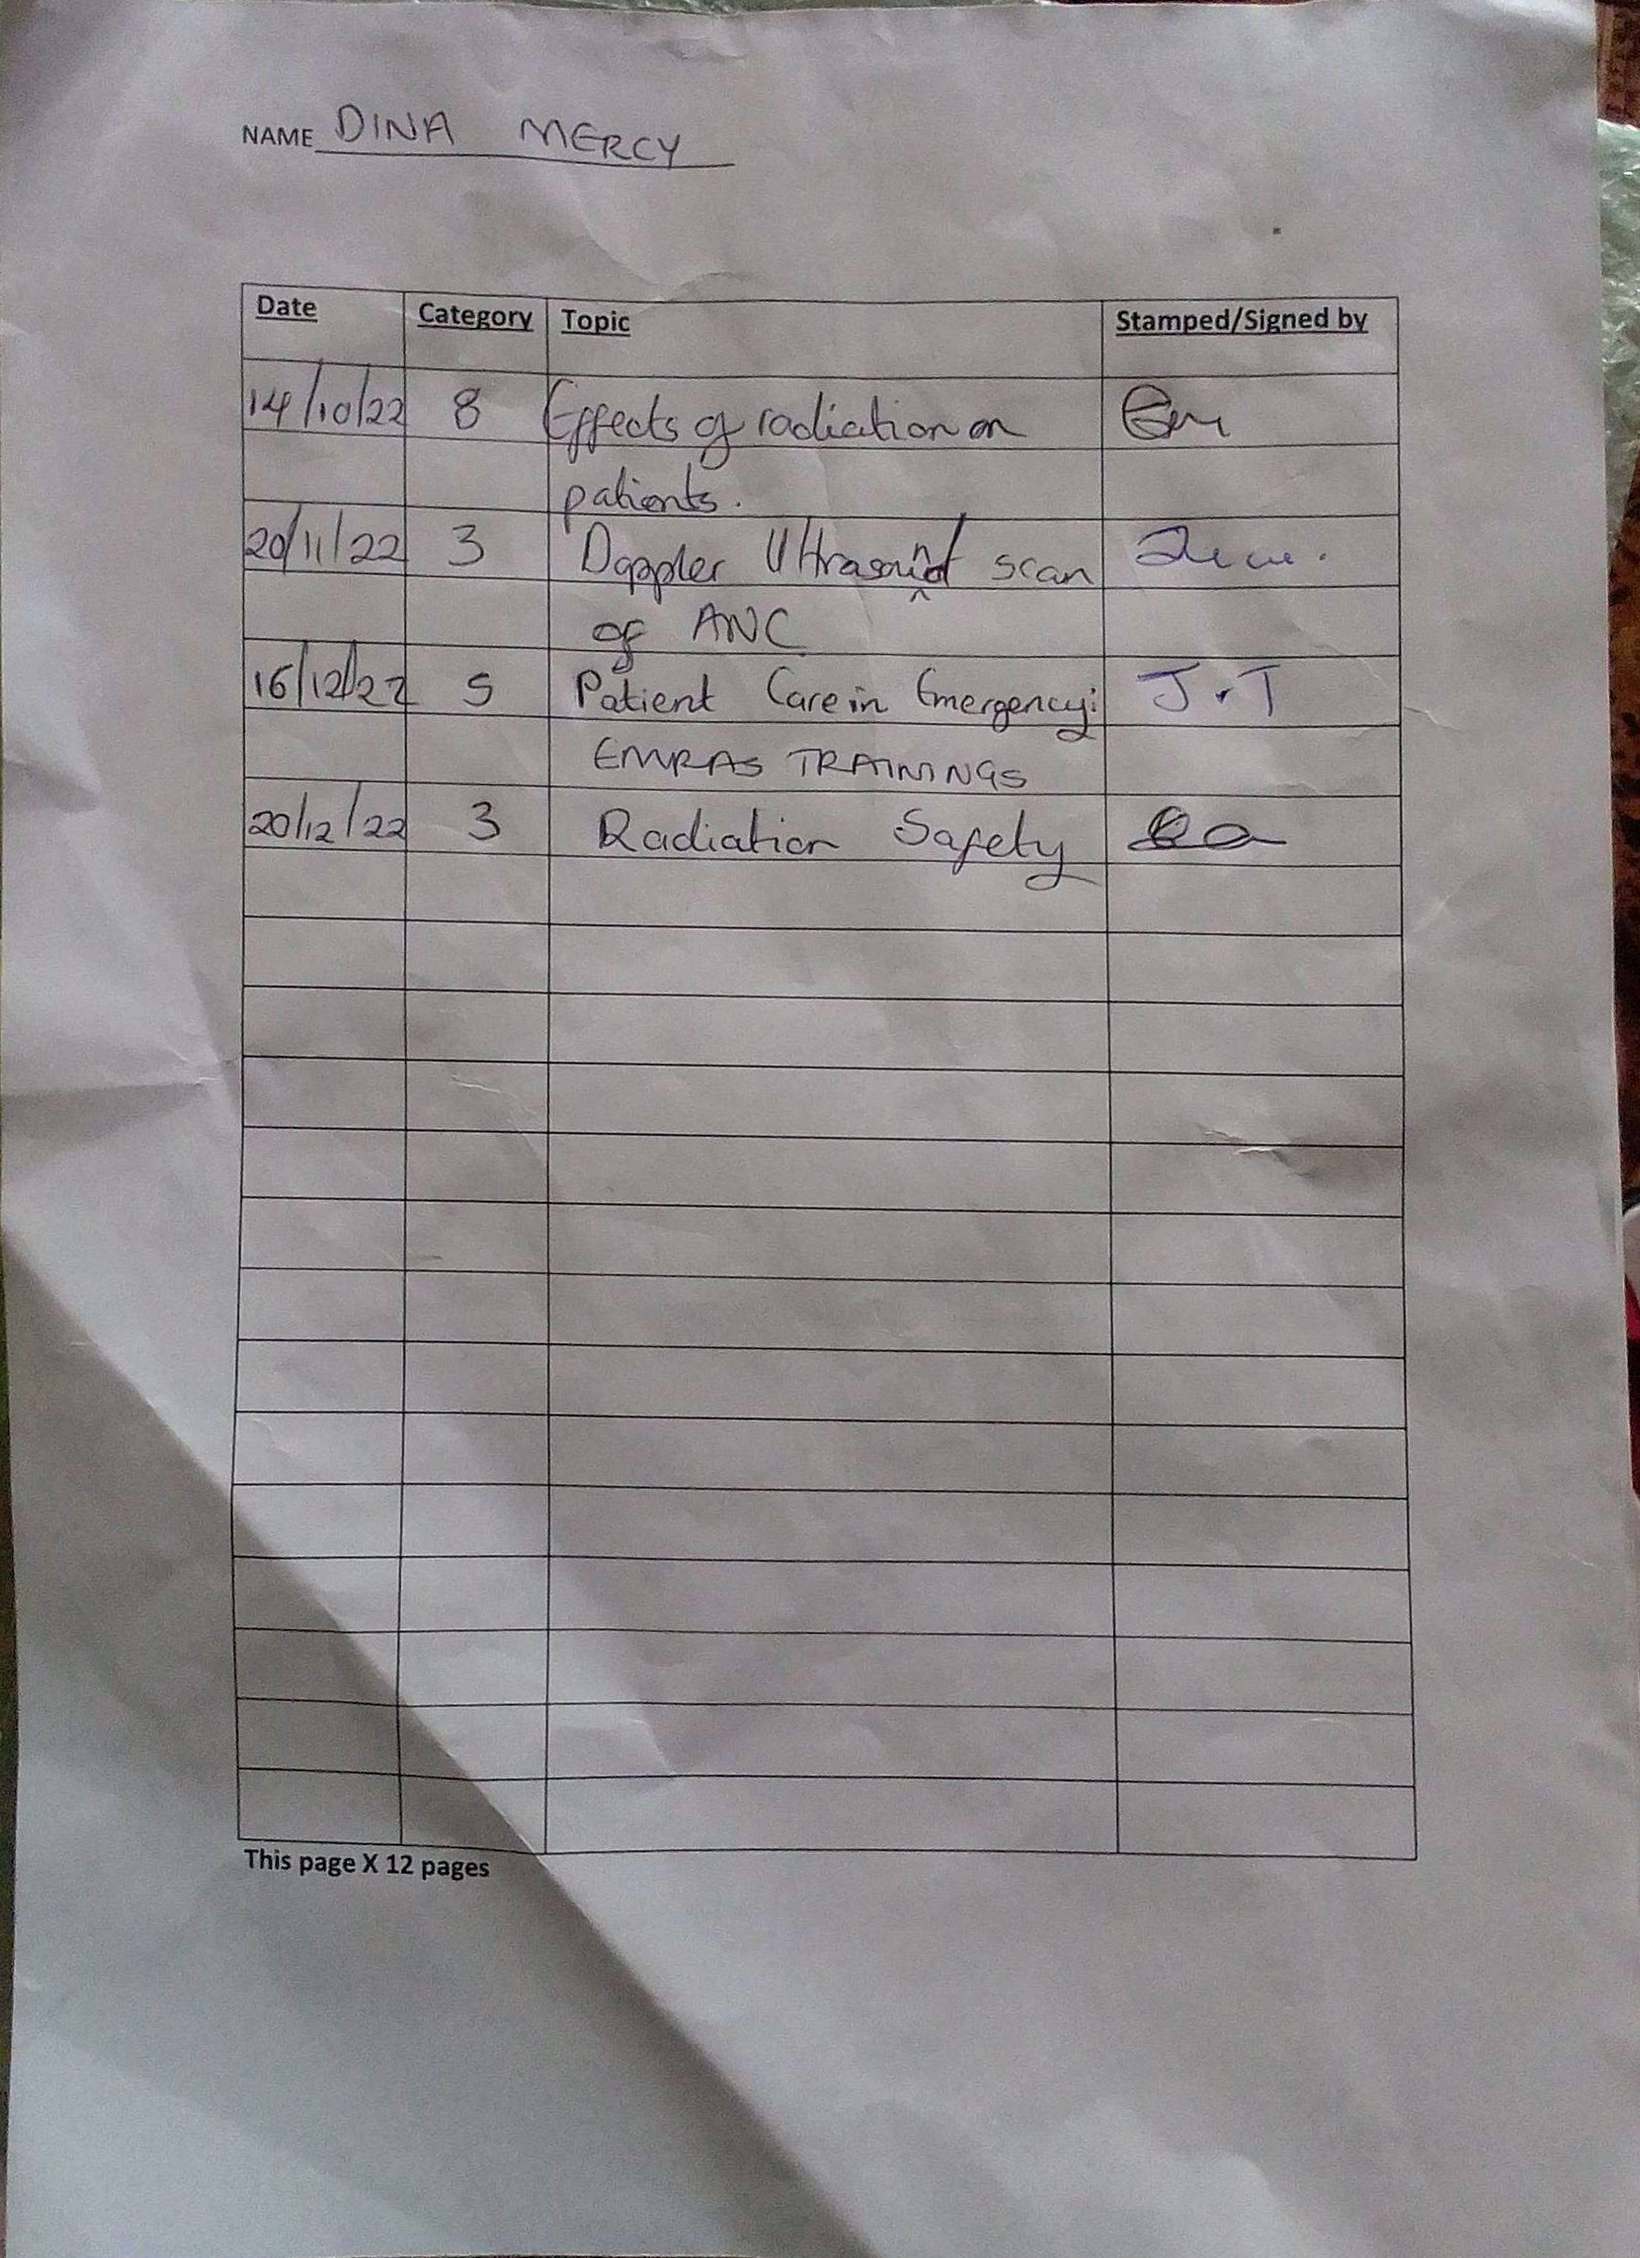 NAME DINA MERCY
Date Category Topic Stamped/Signed by
14/10/22 8 Effects of radiation on
patients.
20/11/22 3 Doppler Ultrasound scan
of ANC
16/12/22 5 Patient Care in Emergency: J.T
EMRAS TRAININGS
20/12/22 3 Radiation Safety
This page X 12 pages